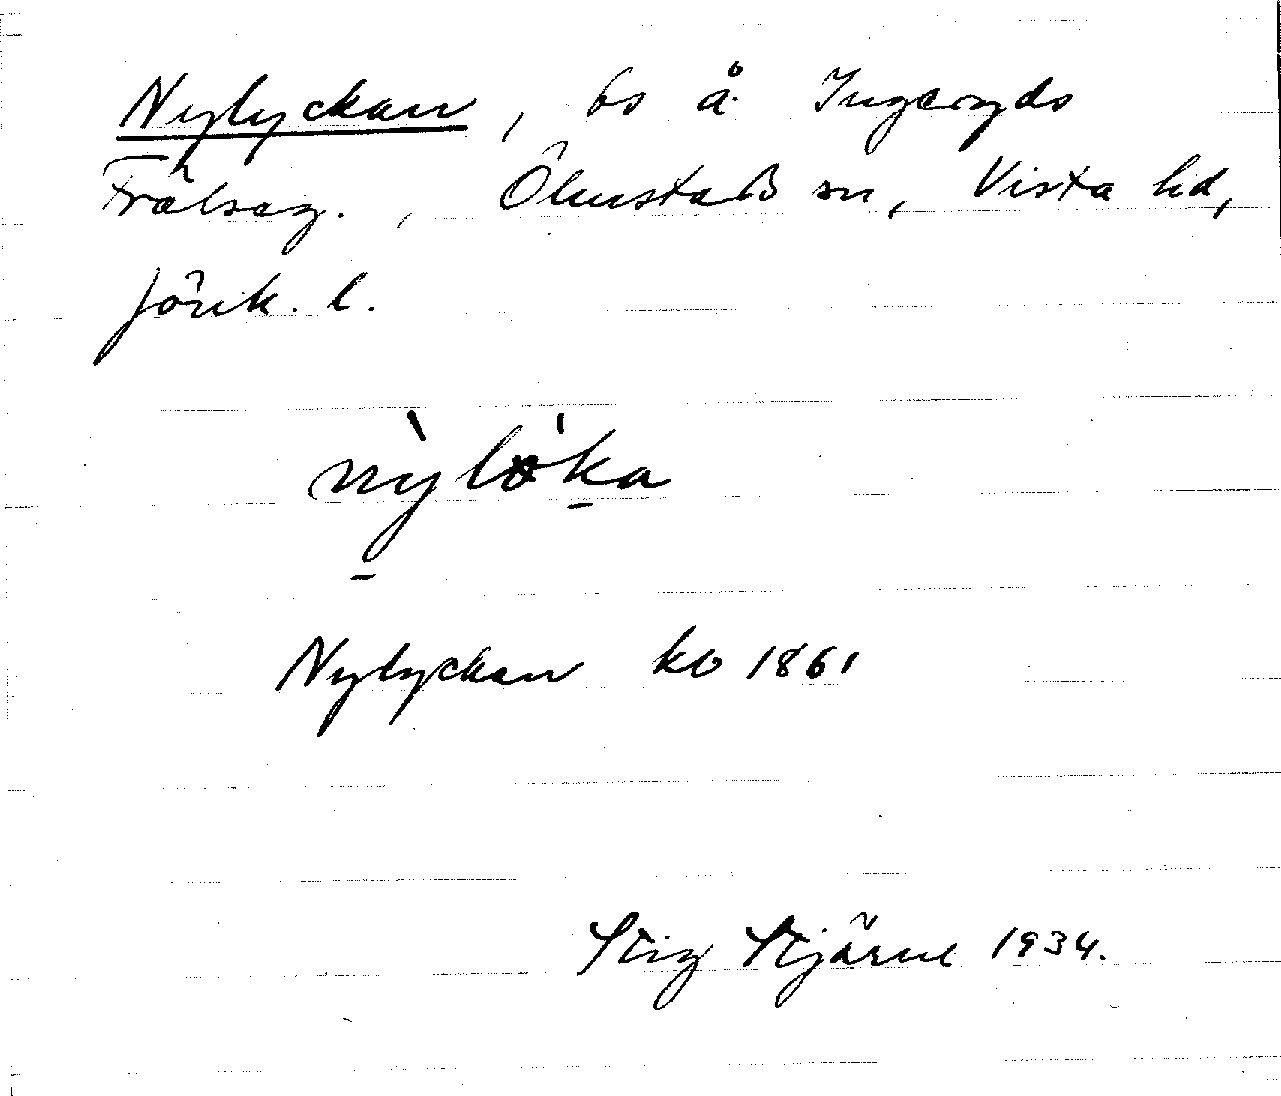 Nylyckan, bs å Ingeryds
Frälseg., Ölmstads sn, Vista hd,
Jönk. l.
nỳlö́ka
Nylyckan kb 1861
Stig Stjärne 1934.